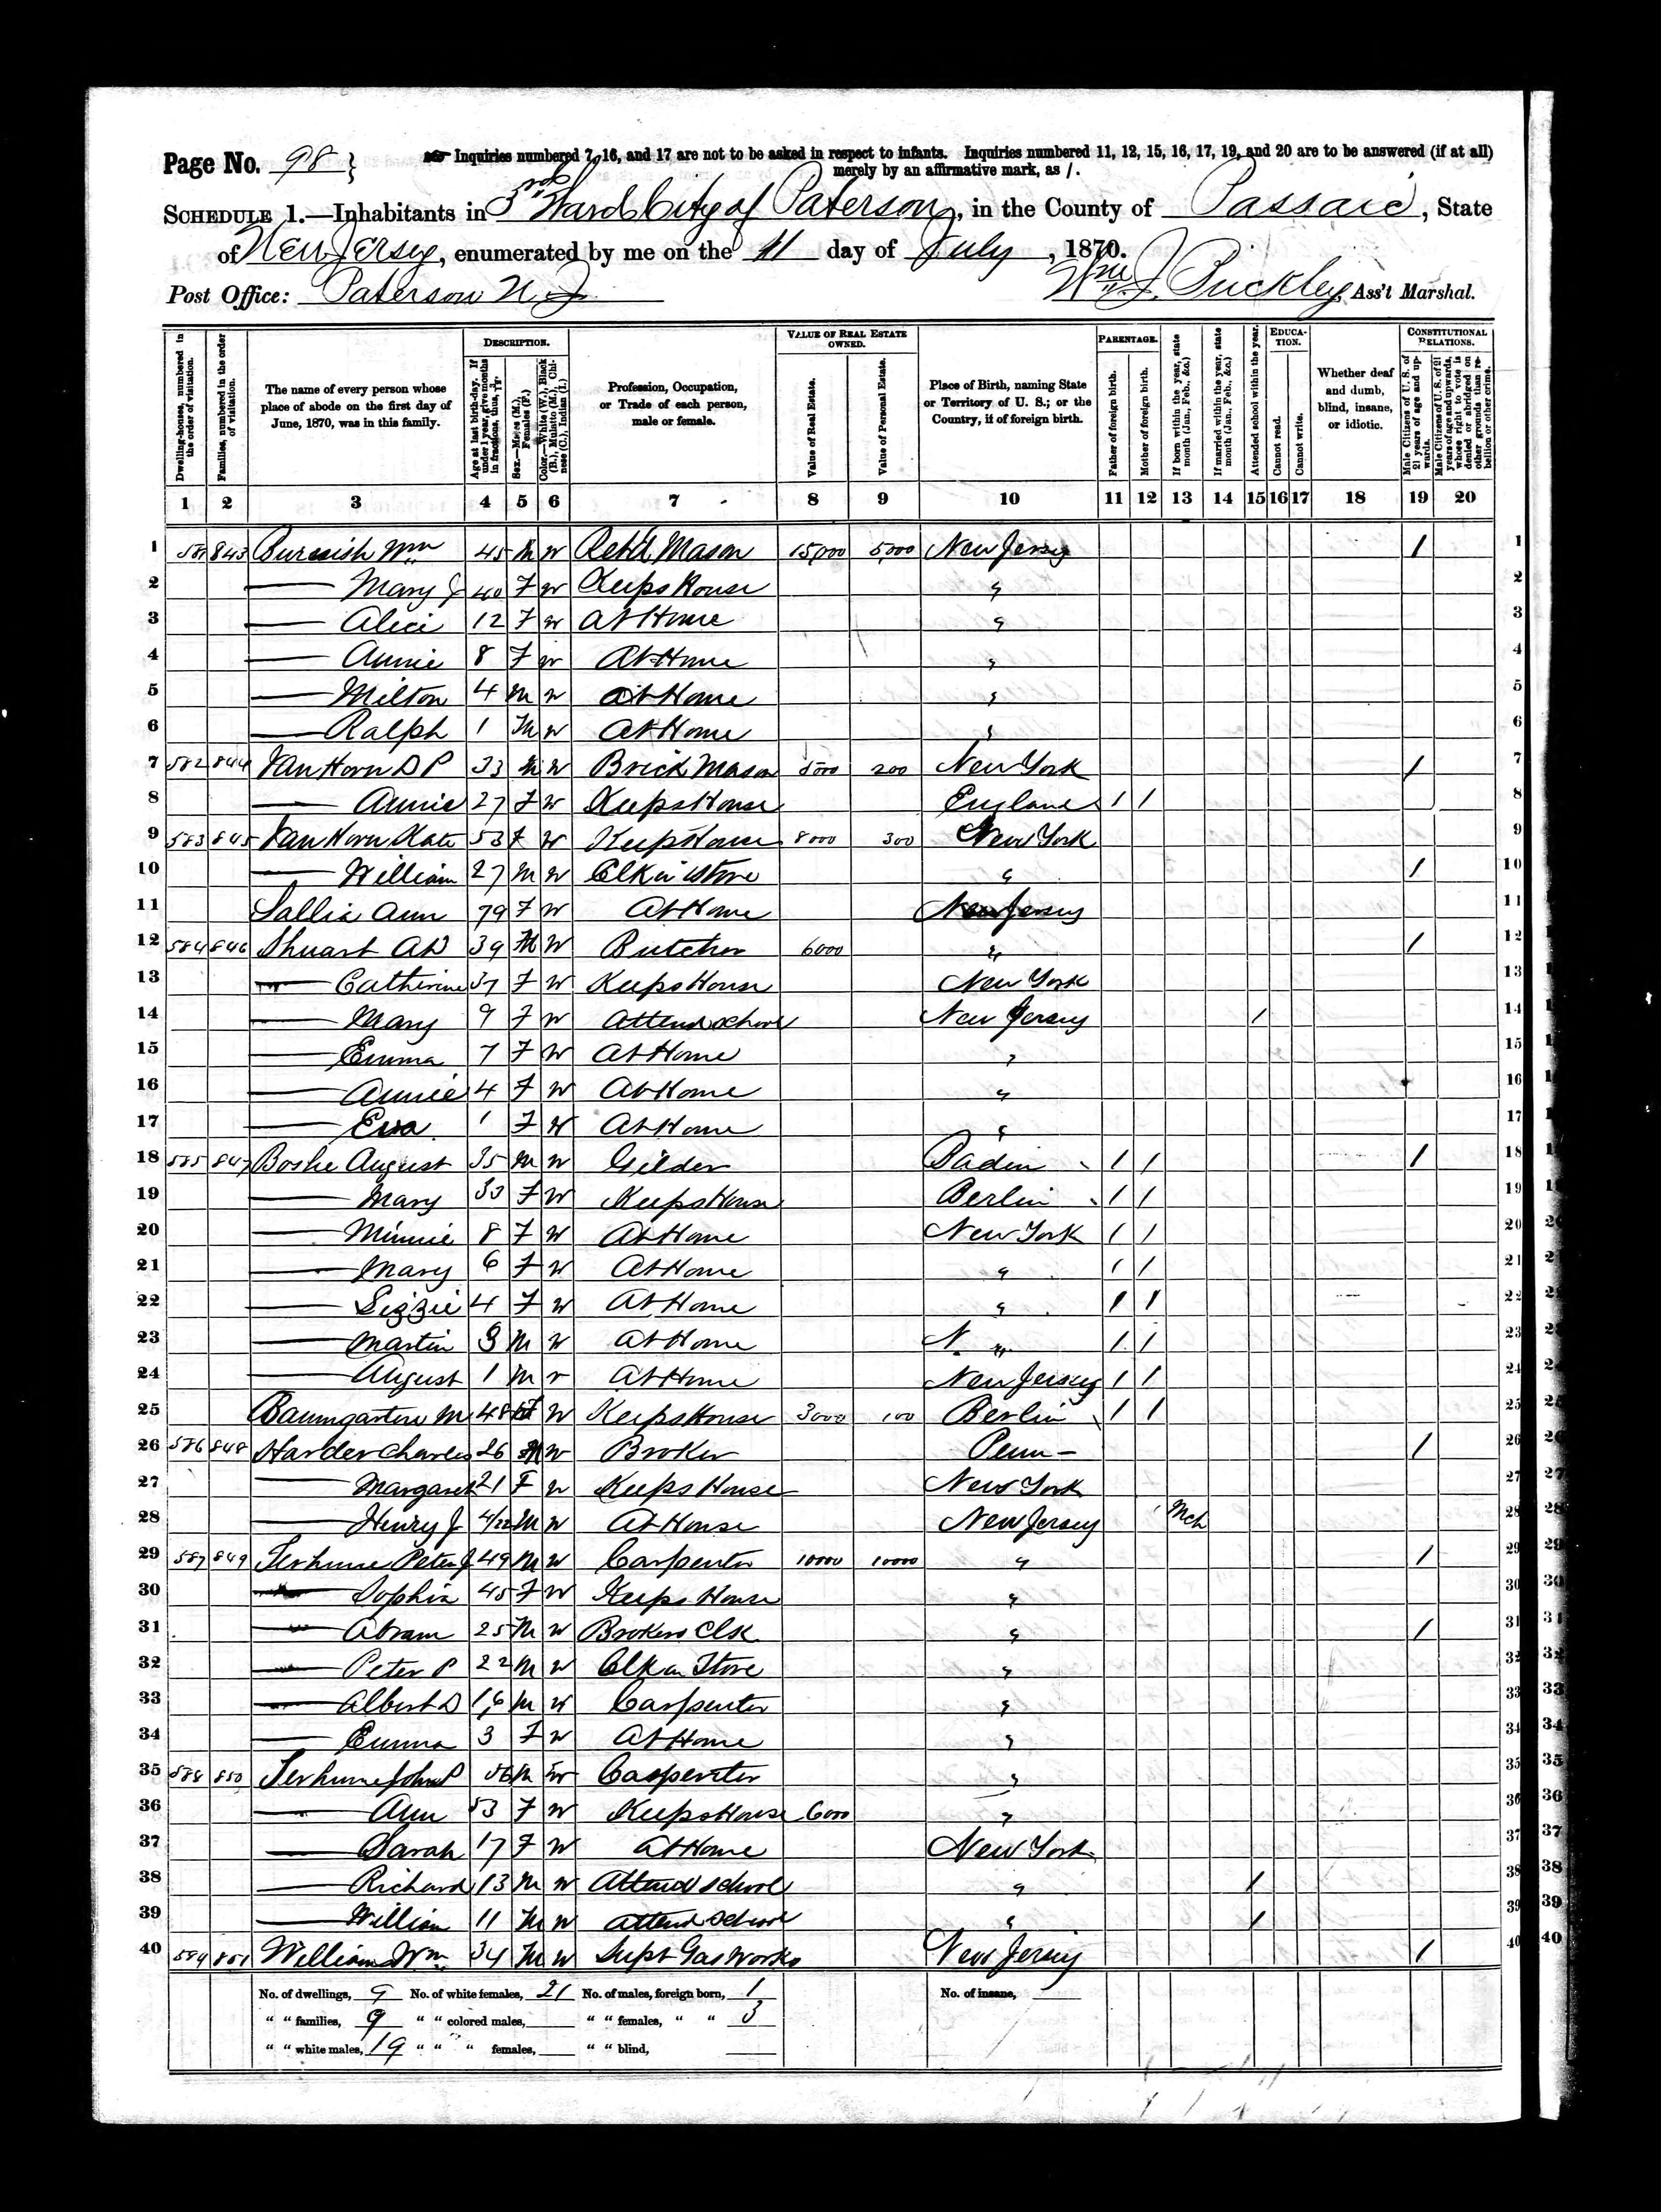 Page No. 98 }
Inquiries numbered 7, 16, and 17 are not to be asked in respect to infants. Inquiries numbered 11, 12, 15, 16, 17, 19, and 20 are to be answered (if at all)
merely by an affirmative mark, as /.
SCHEDULE 1.—Inhabitants in 3rd Ward City of Paterson, in the County of Passaic, State
of New Jersey, enumerated by me on the 11 day of July, 1870.
Post Office: Paterson N J Wm J. Buckley, Ass't Marshal.
DESCRIPTION. VALUE OF REAL ESTATE OWNED. PARENTAGE. EDUCATION. CONSTITUTIONAL RELATIONS.
Dwelling-houses, numbered in the order of visitation.
Families, numbered in the order of visitation.
The name of every person whose place of abode on the first day of June, 1870, was in this family.
Age at last birth-day. If under 1 year, give months in fractions, thus, 3/12.
Sex.—Males (M.), Females (F.)
Color.—White (W.), Black (B.), Mulatto (M.), Chinese (C.), Indian (I.)
Profession, Occupation, or Trade of each person, male or female.
Value of Real Estate.
Value of Personal Estate.
Place of Birth, naming State or Territory of U. S.; or the Country, if of foreign birth.
Father of foreign birth.
Mother of foreign birth.
If born within the year, state month (Jan., Feb., &c.)
If married within the year, state month (Jan., Feb., &c.)
Attended school within the year.
Cannot read.
Cannot write.
Whether deaf and dumb, blind, insane, or idiotic.
Male Citizens of U. S. of 21 years of age and upwards.
Male Citizens of U. S. of 21 years of age and upwards, whose right to vote is denied or abridged on other grounds than rebellion or other crime.
1 2 3 4 5 6 7 8 9 10 11 12 13 14 15 16 17 18 19 20
1 581 843 Wm 45 M W Ret'd Mason 15,000 5000 New Jersey / 1
2 — Mary J 40 F W Keeps House " 2
3 — Alice 12 F W At Home " 3
4 — Annie 8 F W At Home " 4
5 — Milton 4 M W At Home " 5
6 — Ralph 1 M W At Home " 6
7 582 844 Van Horn D P 33 M W Brick Mason 200 New York / 7
8 — Annie 27 F W Keeps House England / / 8
9 583 845 Van Horn Kate 53 F W Keeps House 8000 300 New York 9
10 — William 27 M W Clk in Store " / 10
11 Sallia Ann 79 F W At Home New Jersey 11
12 584 846 Shuart A D 39 M W Butcher 6000 " / 12
13 — Catherine 37 F W Keeps House New York 13
14 — Mary 9 F W Attend school New Jersey / 14
15 — Emma 7 F W At Home " 15
16 — Annie 4 F W At Home " 16
17 — Eva 1 F W At Home " 17
18 585 847 Boshe August 35 M W Gilder Baden / / / 18
19 — Mary 33 F W Keeps House Berlin / / 19
20 — Minnie 8 F W At Home New York / / 20
21 — Mary 6 F W At Home " / / 21
22 — Lizzie 4 F W At Home " / / 22
23 — Martin 3 M W At Home N. " / / 23
24 — August 1 M W At Home New Jersey / / 24
25 Baumgarten M 48 F W Keeps House 3000 100 Berlin / / 25
26 586 848 Harder Charles 26 M W Broker Penn — / 26
27 — Margaret 21 F W Keeps House New York 27
28 — Henry J 4/12 M W At House New Jersey Mch 28
29 587 849 Terhune Peter J 49 M W Carpenter 10000 10000 " / 29
30 — Sophia 45 F W Keeps House " 30
31 — Abram 25 M W Brokers Clk " / 31
32 — Peter P 22 M W Clk in Store " 32
33 — Albert D 16 M W Carpenter " 33
34 — Emma 3 F W At Home " 34
35 588 850 Terhune John P 56 M W Carpenter " 35
36 — Ann 53 F W Keeps House 6000 " 36
37 — Sarah 17 F W At Home New York 37
38 — Richard 13 M W Attend school " / 38
39 — William 11 M W Attend school " / 39
40 584 851 Williams Wm 34 M W Supt Gas Works New Jersey / 40
No. of dwellings, 9 No. of white females, 21 No. of males, foreign born, 1 No. of insane,
" " families, 9 " " colored males, " " females, " " 3
" " white males, 19 " " " females, " " blind,